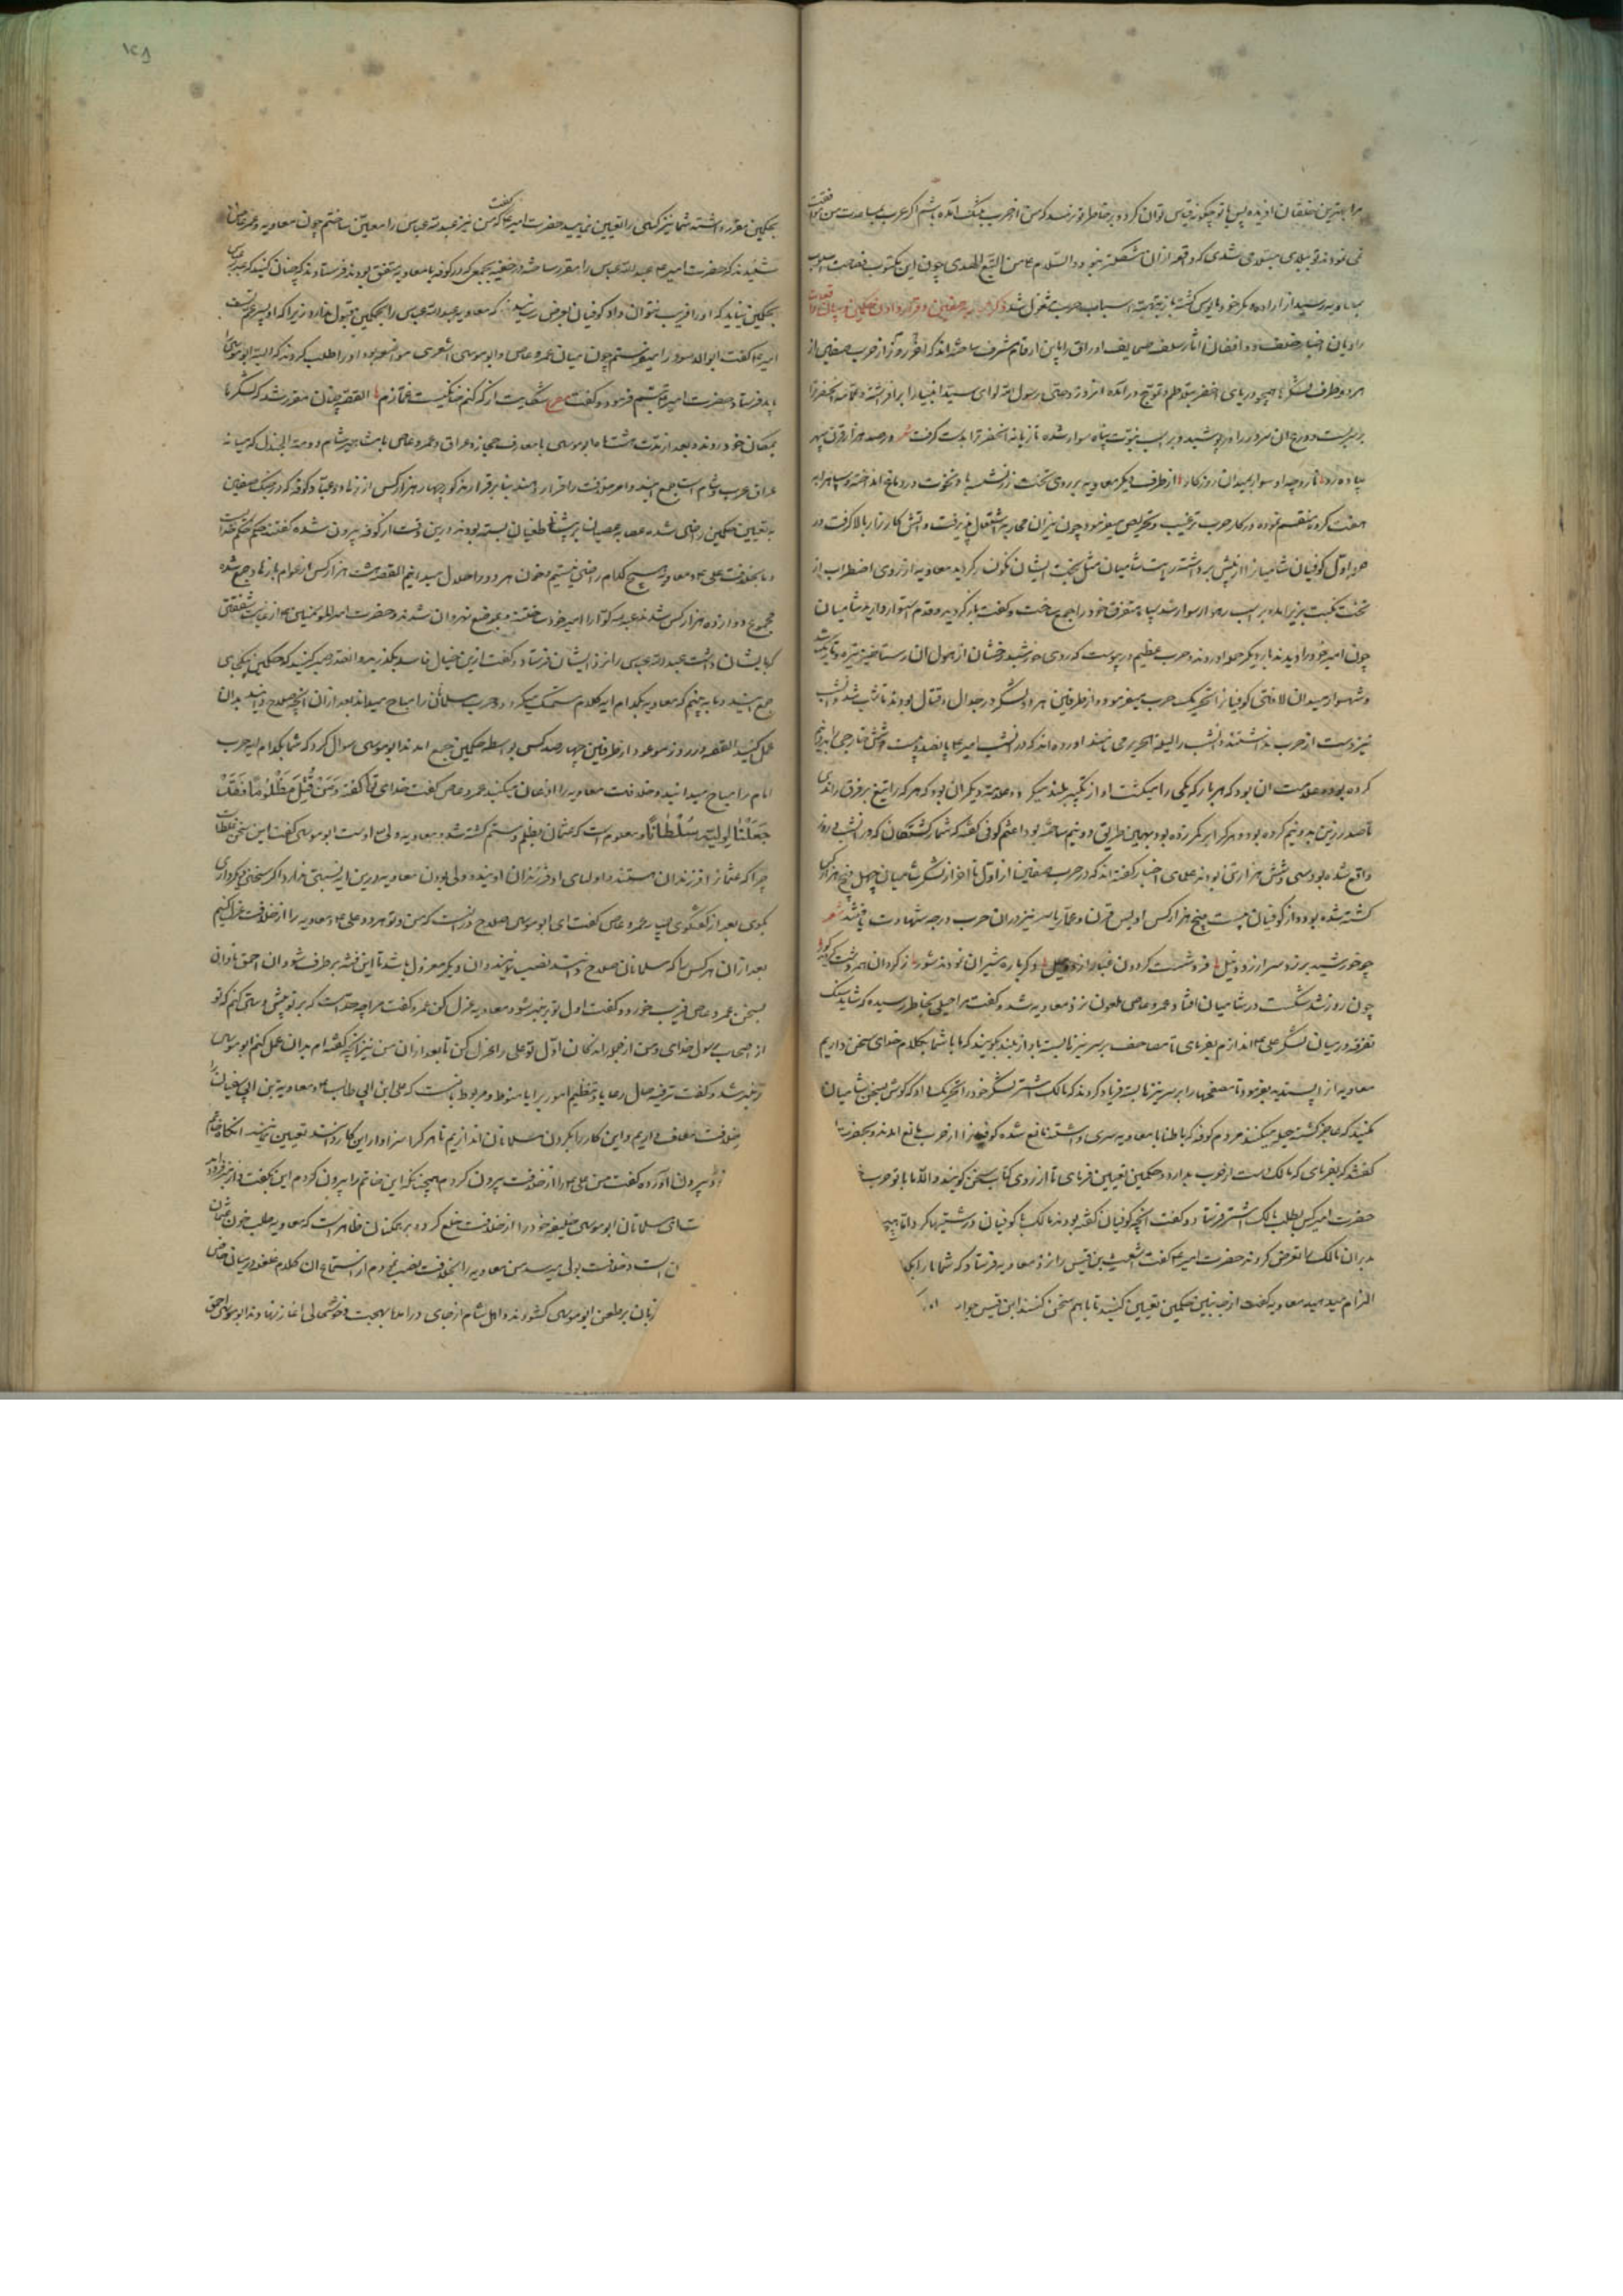 مرا بدترین خلقان
نمی نمودند تو بدی مستولی شدی که دفعه ازان مشکل نمی بود والسلام علی من اتبع الهدی چون این مکتوب فصاحت اسلوب
بمعاویه رسید از اراده دیگر خود مایوس گشته باز بتهیه اسباب حرب مشغول شد ذکر حرب صفین و قرار دادن حکمین و بیان واقعات
راویان اخبار خلف و واقفان اثار سلف صحایف اوراق را باین ارقام مشرف ساخته اند که اخر روز از حرب صفین از
هر دو طرف لشکرها همچو دریای اخضر بتلاطم و تموج در آمده انروز وصی رسول الله لوای سید انبیا را بر افراشته و عمامه انحضرت را
بر سر بست و درع ان سرور را در پوشید و بر اسب نبوت پناه سوار شده تازیانه انحضرت را بدست گرفت
پیاده رود تا رود چه او سوار بمیدان روزگار از طرف دیگر معاویه بر روی تخت زر نشسته با و نخوت در دماغ انداخته و سپاهرا به
هفت گروه منقسم نموده در کار حرب ترغیب و تحریص میفرمود چون نیران محاربه اشتعال پذیرفت و اتش کارزار بالا گرفت در
حمله اول کوفیان شامیانرا از پیش برداشته رایت شامیان مثل بخت ایشان نگون گردید معاویه از روی اضطراب از
تخت نکبت بزیر امده بر اسب رهوار سوار شد سپاه متفرق خود را جمع ساخت و گفت باز گردید و قدم استوار دارید شامیان
چون امیر خود را دیدند بار دیگر حمله اوردند و حرب عظیم در پیوست که روی خورشید درخشان از هول ان رستاخیز تیره و تاریک شد
و شهسوار میدان لا فتی کوفیانرا تحریک حرب میفرمود و از طرفین هر دو لشکر در جدال و قتال بودند تا شب شد و شب
نیز دست از حرب نداشتند و انشب را لیلة الهریر می نامند اورده اند که در انشب امیر ع پانصد و بیست و شش خارجی را بدو نیم
کرده بود و علامت ان بود که هر بار که یکی را میکشت اواز تکبیر بلند میکرد و علامت دیگر ان بود که هر که را تیغ بر فرق راندی
تا صدر زین بدو نیم کرده بود و هر کرا بر کمر زده بود بهمین طریق دو نیم ساخته بود اعثم کوفی گفته که شمار کشتگان که در انشب و روز
واقع شده بود سی و شش هزار تن بودند علمای اخبار گفته اند که در حرب صفین از اول تا اخر از لشکر شامیان چهل و پنج هزار کس
کشته شده بود و از کوفیان بیست پنج هزار کس اویس قرن و عمار یاسر نیز در ان حرب بدرجه شهادت یافتند شعر
چو خورشید برزد سر از زرد نیل فروشست گردون غبار از
چون روز شد شکست در شامیان افتاد عمرو عاص ملعون نزد معاویه شد و گفت مرا حیلتی بخاطر رسیده که شاید سنگ
تفرقه در میان لشکر علی ع اندازم بفرمای تا مصاحف بر سر نیزها بسته باواز بلند گویند که ما با شما بکلام خدای سخن داریم
معاویه انرا پسندیده بفرمود تا مصحفها را بر سر نیزها بسته فریاد کردند که مالک اشتر لشکر خود را تحریک داد که گوش بسخن شامیان
نکنید که عاجز گشته حیله میکنند مردم کوفه که باطنا با معاویه سری داشتند مانع شده کوفیانرا از حرب مانع امدند و بحضرت
گفتند که بفرمای که مالک دست از حرب بدارد و حکمین تعیین فرمای تا از روی کتاب سخن گویند و الا ما با تو حرب
حضرت امیر کس بطلب مالک اشتر فرستاد و گفت انچه کوفیان گفته بودند مالک با کوفیان درشتیها کرد
بدیران مالک را تعرض کردند حضرت امیر ع گفت اشعث بن قیس را نزد معاویه فرستاد که شما ما را بکلام
الزام میدهید معاویه گفت از جانبین حکمین تعیین کنید تا باهم سخن کنند ابن قیس جواب
۱۲۸
بحکمین مقرر داشته شما نیز کسی را تعیین نمایید حضرت امیر ع گفت که من نیز عبدالله عباس را معین ساختم چون معاویه و عمرو عاص
شنیدند که حضرت امیر ع عبدالله عباس را مقرر ساخته در خفیه بجمعی که در کوفه با معاویه متفق بودند فرستادند که چنان کنید که
بحکمین نیاید که اورا فریب نتوان داد کوفیان بعرض رسانیدند که معاویه عبدالله عباس را بحکمین قبول ندارد زیرا که او پسر عم تست
امیر ع گفت ابوالاسود را میفرستم چون میان عمرو عاص و ابو موسی اشعری مواضعه بود اورا طلب کردند که البته ابو موسی را
باید فرستاد حضرت امیر ع تبسم فرمود و گفت مصرع شکایت از که کنم خانگیست غمازم القصه چنان مقرر شد که لشکرها
بمکان خود روند و بعد از مدت هشت ماه ابو موسی با معارف حجاز و عراق و عمرو عاص با مشاهیر شام در دومة الجندل که میانه
عراق عرب و شام است جمع ایند و امر خلافت را قرار دهند بنا بر قرار مذکور چهار هزار کس از زهاد و عباد کوفه که در جنگ صفین
به تعیین حکمین راضی شده عصابه عصیان بر پیشانی طغیان بسته بودند درین وقت از کوفه بیرون شده گفتند حکم حکم خداست
و ما بخلافت علی ع و معاویه هیچ کدام راضی نیستیم و خون هر دو را حلال میدانیم القصه هشت هزار کس از عوام با زهاد جمع شده
مجموع دوازده هزار کس شدند عبدالله کوا را امیر خود ساختند و بموضع نهروان شدند و حضرت امیر المؤمنین ع از غایت شفقتی
که بایشان داشت عبدالله عباس را نزد ایشان فرستاد و گفت ازین خیال فاسد بگذرید و انقدر صبر کنید که حکمین یکجای
جمع ایند و ما به بینیم که معاویه بکدام ایه کلام تمسک میکرد و حرب مسلمانان را مباح میداند بعد ازان انچه صلاح دانید بدان
عمل کنید القصه در روز موعود از طرفین چهار صد کس بواسطه حکمین جمع امدند ابو موسی سوال کرد که شما بکدام ایه حرب
امام را مباح میدانید و خلافت معاویه را اذعان میکنید عمرو عاص گفت خدای تعالی گفته وَمَنْ قُتِلَ مَظْلُومًا فَقَدْ
جَعَلْنَا لِوَلِیِّهِ سُلْطَانًا و معلوم است که عثمان بظلم و ستم کشته شد و معاویه ولی اوست ابو موسی گفت این سخن غلطست
چرا که عثمان را فرزندان هستند و اولیای او فرزندان اویند و ولی بودن معاویه درین ایه نسبتی ندارد اگر سخنی دیگر داری
بگوی بعد از گفتگوی بسیار عمرو عاص گفت ای ابو موسی صلاح درانست که من و تو هر دو علی ع و معاویه را از خلافت عزل کنیم
بعد ازان هر کس را که مسلمانان صلاح دانند نصب نمایند و ان دیگر معزول باشد تا این فتنه برطرف شود ان احمق نادان
بسخن عمرو عاص فریب خورد و گفت اول تو بر منبر شو و معاویه عزل کن عمرو گفت مرا چه حد است که بر تو پیش دستی کنم که تو
از اصحاب رسول خدای و من از جمله اراذل کان اول تو علی را عزل کن تا بعد از ان من نیز انچه گفته ام بدان عمل کنم ابو موسی
بر منبر شد و گفت ترفیه حال رعایا و تنظیم امور برایا منوط و مربوط بانست که علی ابن ابی طالب ع و معاویه بن ابی سفیان را
خلافت معاف داریم و این کار را بگردن مسلمانان اندازیم تا هر کرا سزاوار این کار دانند تعیین نمایند انگاه خاتم
بیرون اورده گفت من علی ع را از خلافت بیرون کردم همچنانکه این خاتم را بیرون کردم این بگفت و از منبر فرود امد
ای مسلمانان ابو موسی خلیفه خود را از خلافت خلع کرد و بر همکنان ظاهر است که معاویه طلب خون عثمان
است و خلافت بولی میرسد من معاویه را بخلافت نصب کردم از استماع ان کلام غلغله در میان خاص
زبان بر طعن ابو موسی گشودند و اهل شام از جای در امدند بهجت و خوشحالی اغاز نهادند ابو موسی احمق